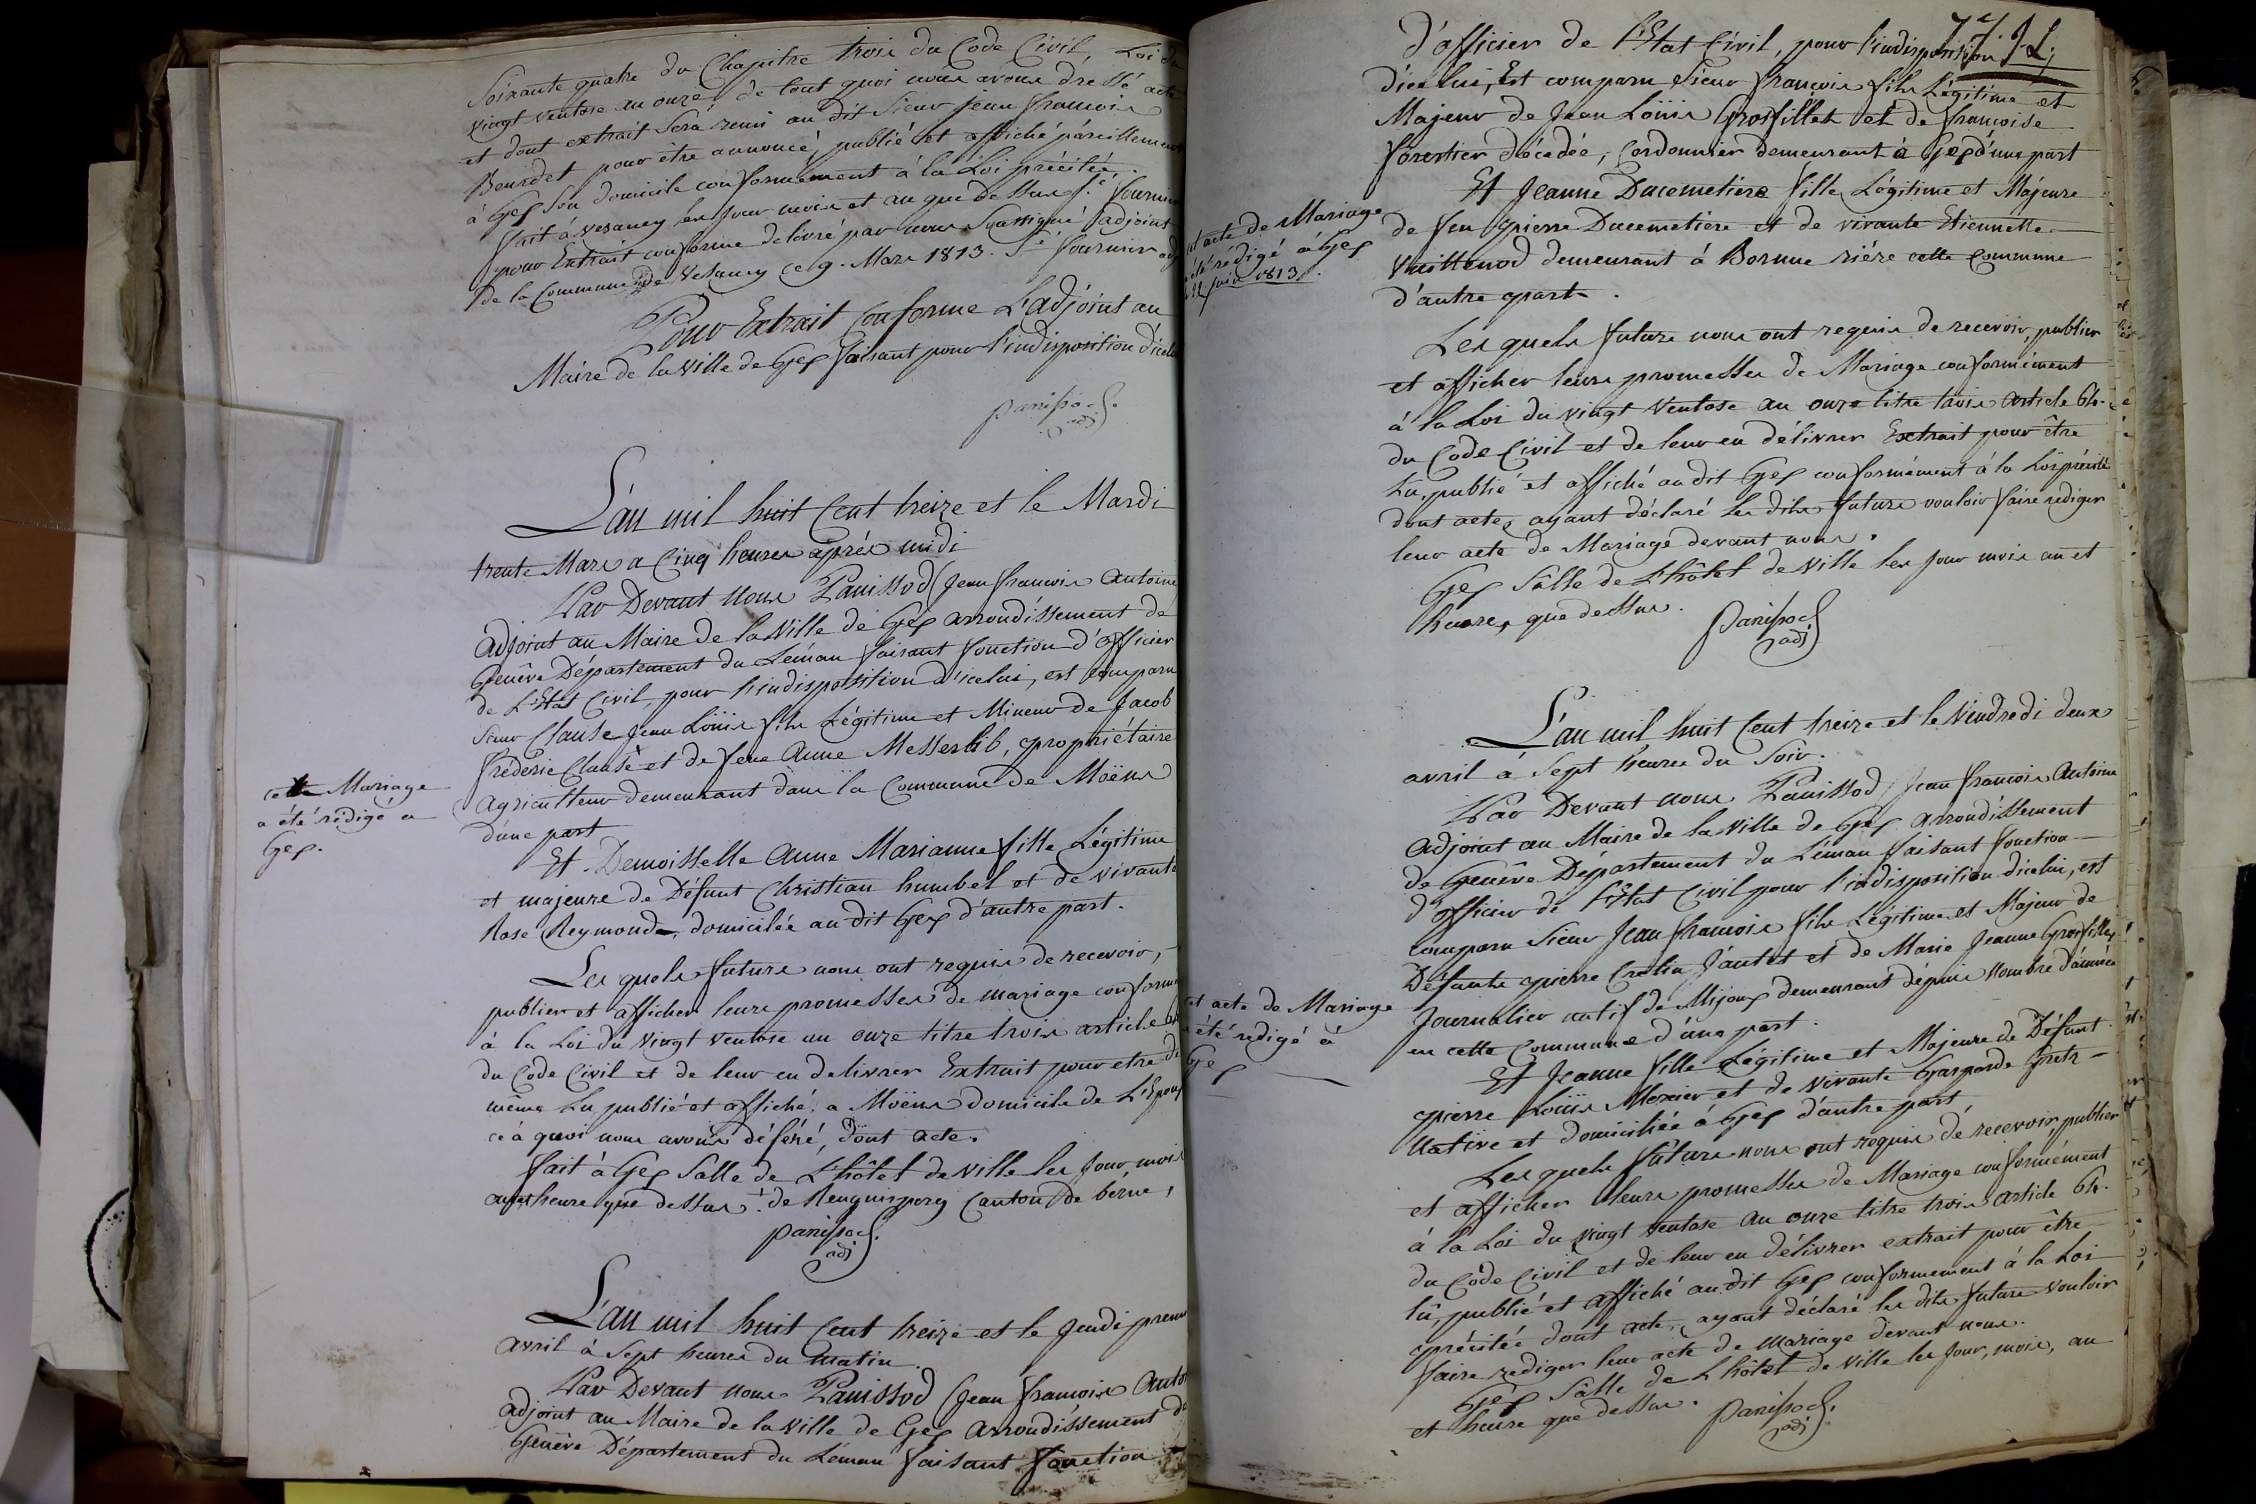 Soixante quatre du Chapitre trois du Code Civil, Loi du
vingt ventose an onze, de tout quoi nous avons dressé acte
et dont extrait sera remis au dit Sieur Jean françois
Beurdet pour être annoncé, publié et affiché pareillement
à Gex son domicile conformément à la Loi précitée,
fait à Vesancy les jour mois et an que dessus. fournier
pour Extrait conforme délivré par nous Soussigné adjoint
de la Commune de Vesancy ce 9. Mars 1813. Sé. fournier adj
Pour Extrait Conforme L'adjoint au
Maire de la Ville de Gex faisant pour l'indisposition d'icelui
panissod.
adj
L'an mil huit Cent treize et le Mardi
trente Mars a Cinq heures après midi
Par Devant Nous Panissod (Jean françois Antoine
Adjoint au Maire de la Ville de Gex arrondissement de
Genève Département du Léman faisant fonction d'officier
de L'Etat Civil, pour l'indispossition d'icelui, est comparu
Sieur Clause Jean Loüis fils Légitime et Mineur de Jacob
fréderic Clause et de feue Anne Messerlib, propriétaire
Agriculteur demeurant dans la Commune de Moëns
d'une part
cette Mariage
a été rédigé a
Gex.
Et Demoisselle Anne Marianne fille Légitime
et majeure de Défunt Christian humbel et de vivante
Rose Reymonde, domicilée au dit Gex d'autre part.
Les quels futurs nous ont requis de recevoir,
publier et afficher leurs promesses de mariage conforme
à la Loi du vingt ventose an onze titre trois article 64
du Code Civil et de leur en delivrer Extrait pour etre de
même Lu publié et affiché. a Moëns domicile de L'Epoux
ce à quoi nous avons déféré, dont acte.
fait à Gex Salle de L'hôtel de Ville les jour, mois
an et heure que dessus. de Renguisperg Canton de bérne,
panissod.
adj
L'an mil huit Cent treize et le Jeudi premier
Avril à Sept heures du matin.
Par Devant nous Panissod (Jean françois Anto
adjoint au Maire de la Ville de Gex Arrondissement de
Genève Département du Léman faisant fonction
77. J. L.
d'officier de l'Etat Civil, pour l'indisposition
d'icelui, Est comparu Sieur françois fils Légitime et
Majeur de Jean Loüis Grosfillex et de françoise
forestier décédée, Cordonnier demeurant à Gex d'une part
Et Jeanne Ducemetiere fille Légitime et Majeure
de feu pierre Ducemetiere et de vivante Etiennette
Vuillenod demeurant à Bornue riére cette Commune
d'autre part.
cet acte de Mariage
a été rédigé à Gex
juin 1813.
Les quels futurs nous ont requis de recevoir, publier
et afficher leurs promesses de Mariage conformément
à la Loi du vingt Ventose an onze titre trois article 64.
du Code Civil et de leur en délivrer Extrait pour être
Lu, publié et affiché au dit Gex conformément à la Loi précité
dont acte, ayant déclaré les dits futurs vouloir faire rediger
leur acte de Mariage devant nous.
Gex Sâlle de L'hôtel de Ville les jour mois an et
heure, que dessus.
panissod
adj
L'an mil huit Cent treize et le Vendredi deux
avril à Sept heures du Soir.
Par Devant nous Panissod (Jean françois Antoine
Adjoint au Maire de la Ville de Gex arrondissement
de Genêve Département du Léman faisant fonction
d'officier de l'Etat Civil pour l'indisposition d'icelui, est
comparu Sieur Jean françois fils Légitime et Majeur de
Défunts pierre Cretin Jantet et de Marie Jeanne Grosfillex
Journalier natif de Mijoux demeurant dépuis Nombre d'années
en cette Commune d'une part.
cet acte de Mariage
a été redigé à
Gex
Et Jeanne fille Légitime et Majeure de Défunt
pierre Loüis Mercier et de vivante Gasparde
Native et domiciliée à Gex d'autre part
Les quels futurs nous ont requis de recevoir, publier
et afficher leurs promesses de Mariage conformément
à la Loi du vingt ventose an onze titre trois article 64.
du Code Civil et de leur en délivrer extrait pour être
lû, publié et affiché au dit Gex conformement à la Loi
précitée dont acte, ayant déclaré les dits futurs vouloir
faire rediger leur acte de mariage devant nous.
Gex Sâlle de L'hôtel de Ville les jour, mois, an
et heure que dessus.
panissod.
adj.